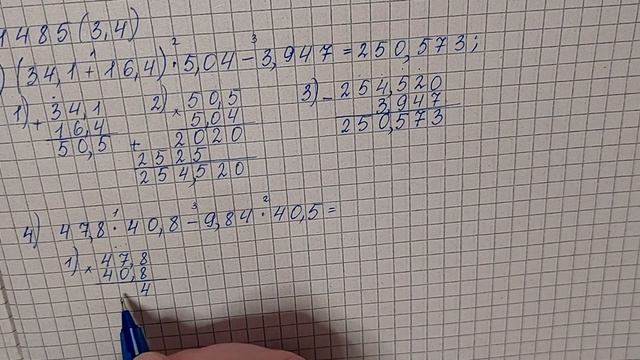 1485(3,4)
) (34,1+16,4)·5,04-3,947=250,573;
1) 34,1
+ 16,4
50,5
2) 50,5
× 5,04
2020
+
2525
254,520
3) - 254,520
3,947
250,573
4) 47,8·40,8-9,84·40,5=
1) 47,8
× 40,8
4